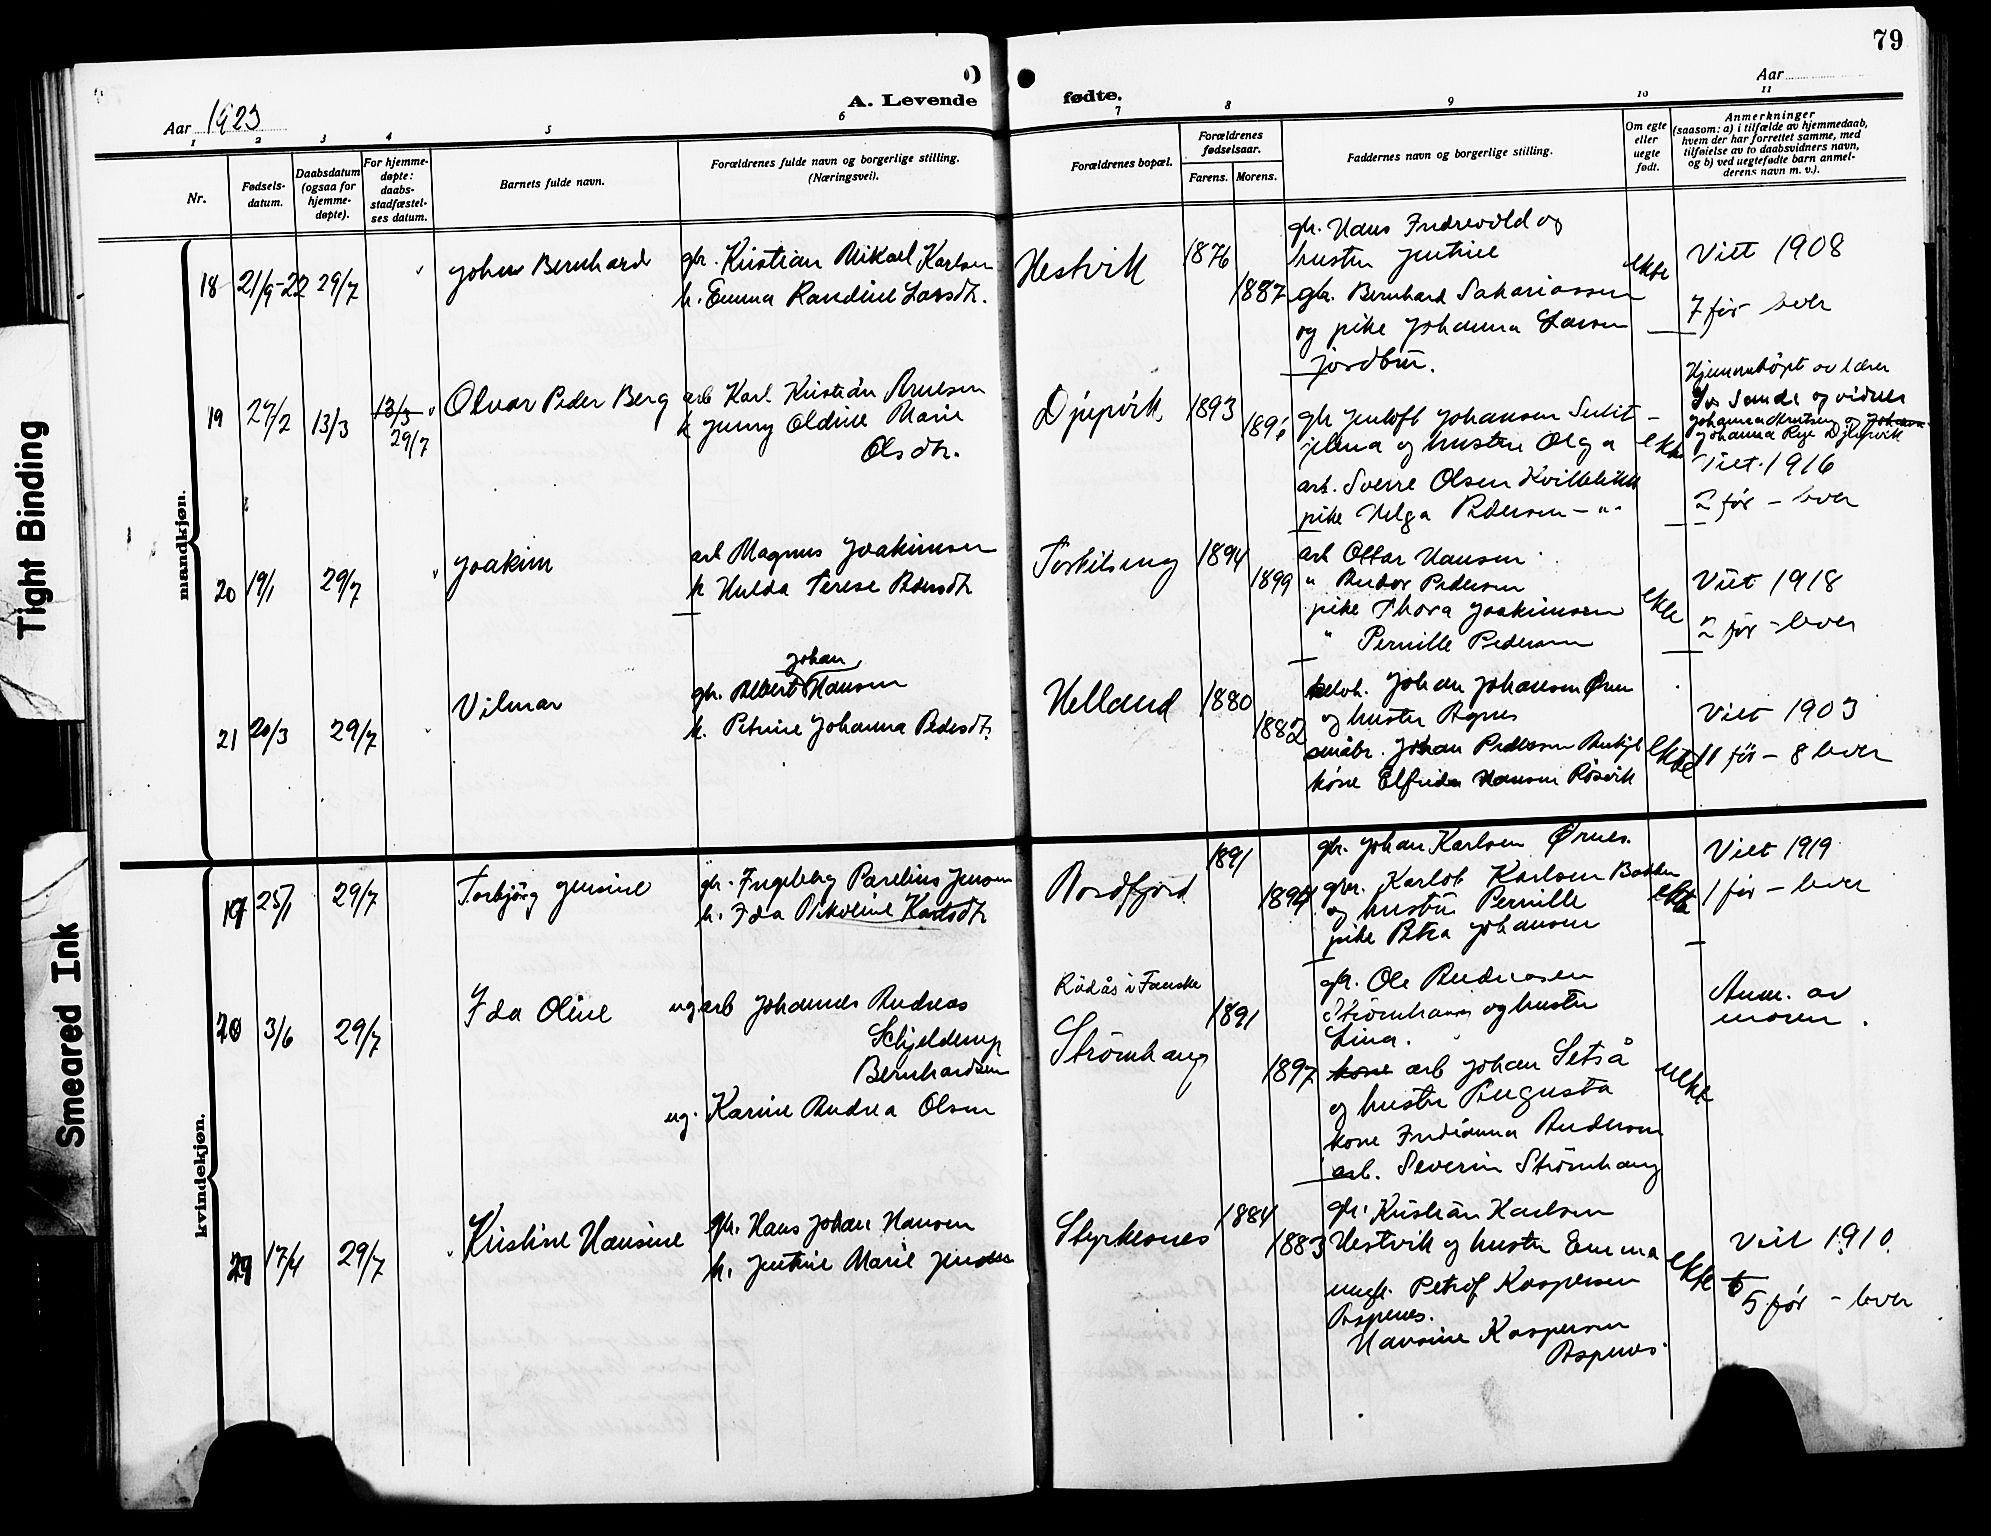 79
Aar 1923
A. Levende
fødte.
Aar
1
2
3
4
5
6
7
8
9
10
11
Nr.
Fødsels-
datum.
Daabsdatum
(ogsaa for
hjemme-
døpte).
For hjemme-
døpte:
daabs-
stadfæstel-
ses datum.
Barnets fulde navn.
Forældrenes fulde navn og borgerlige stilling.
(Næringsvei).
Forældrenes bopæl.
Forældrenes
fødselsaar.
Farens.
Morens.
Faddernes navn og borgerlige stilling.
Om egte
eller
uegte
født.
Anmerkninger
(saasom: a) i tilfælde av hjemmedaab,
hvem der har forrettet samme, med
tilføielse av to daabsvidners navn,
og b) ved uegtefødte barn anmel-
derens navn m. v.).
mandkjøn.
18
21/9-22
29/7
John Bernhard
gbr. Kristian Mikael Karlsen
h. Emma Randine Larsdtr.
Hestvik
1876
1887
gbr. Hans Indrevold og
hustru Jentine
gbr. Bernhard Sakariassen
og pike Johanna Larsen
Jordbru.
ekte
Viet 1908
7 før lever
19
27/2
13/3
13/3
29/7
Olvar Peder Berg
arb Karl Kristian Arnesen
h Jenny Oldine Marie
Olsdtr.
Djupvik
1893
gbr Johansen Sulit-
jelma og hustru Olga
arb. Sverre Olsen Kvikblikk
pike Helga Pedersen - " -
ekte
Hjemmedøpt av lærer
Sande og vidner
Viet 1916
2 før - lever
20
19/1
29/7
Joakim
arb Magnus Joakimsen
h Hulda Terese Pedersdtr
Torkilseng
1894
1899
arb Ottar Hansen
" Pedersen
pike Thora Joakimsen
" Pernille Pedersen
ekte
Viet 1918
2 før - lever
21
20/3
29/7
Vilmar
Johan
gbr. Albert Hansen
h. Petrine Johanna Pedersdtr.
Helland
1880
1882
Johan Johansen Ørnes
og hustru Agnes
småbr. Johan Pedersen
kone Elfrida Hansen Røsvik
ekte
Viet 1903
11 før - 8 lever
kvindekjøn.
19
25/1
29/7
Torbjørg Jensine
gbr. Ingeberg Parelius Jensen
h. Ida Nikoline Karlsdtr
Nordfjord
1891
1894
gbr. Johan Karlsen Ørnes.
gbr. Karlot Karlsen Bakken
og hustru Pernille
pike Petra Johansen
ekte
Viet 1919
1 før - lever
20
3/6
29/7
Ida Oline
ug arb Johannes Andreas
Schjelderup
Bernhardsen
ug. Karine Andrea Olsen
Rødås i Fauske
Strømhaug
1891
1897
gbr. Ole Andreasen
Strømhaug og hustru
Lina.
kone arb Johan Setså
og hustru Augusta
kone Fredianna Andersen
arb. Severin Strømhaug
uekte
Anm. av
moren.
21
17/4
29/7
Kristine Hansine
gbr. Hans Johan Hansen
h. Jentine Marie Jensen
Styrkesnes
1884
1883
gbr. Kristian Karlsen
Hestvik og hustru Emma
ungk. Petrof Kaspersen
Aspenes.
Hansine Kaspersen
Aspenes.
ekte
Viet 1910.
5 før - lever
Tight Binding
Smeared Ink